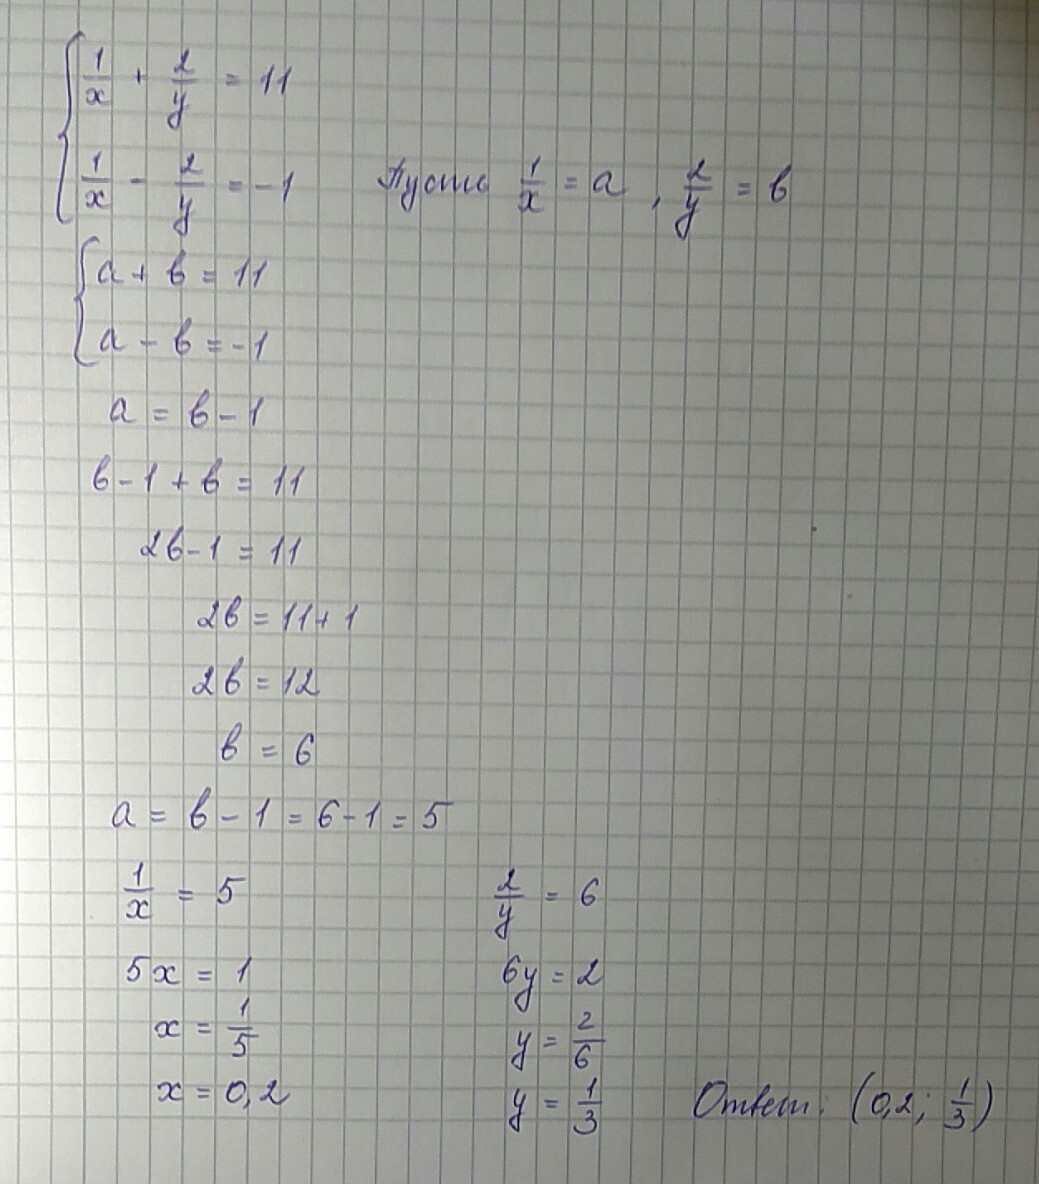 1/x + 2/y = 11
1/x - 2/y = -1 Пусть 1/x = a, 2/y = b
a + b = 11
a - b = -1
a = b - 1
b - 1 + b = 11
2b - 1 = 11
2b = 11 + 1
2b = 12
b = 6
a = b - 1 = 6 - 1 = 5
1/x = 5 2/y = 6
5x = 1 6y = 2
x = 1/5 y = 2/6
x = 0,2 y = 1/3 Ответ: (0,2; 1/3)